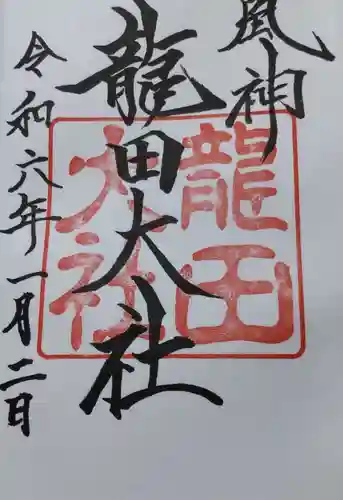 風神
龍田大社
令和六年一月二日
龍田
大社